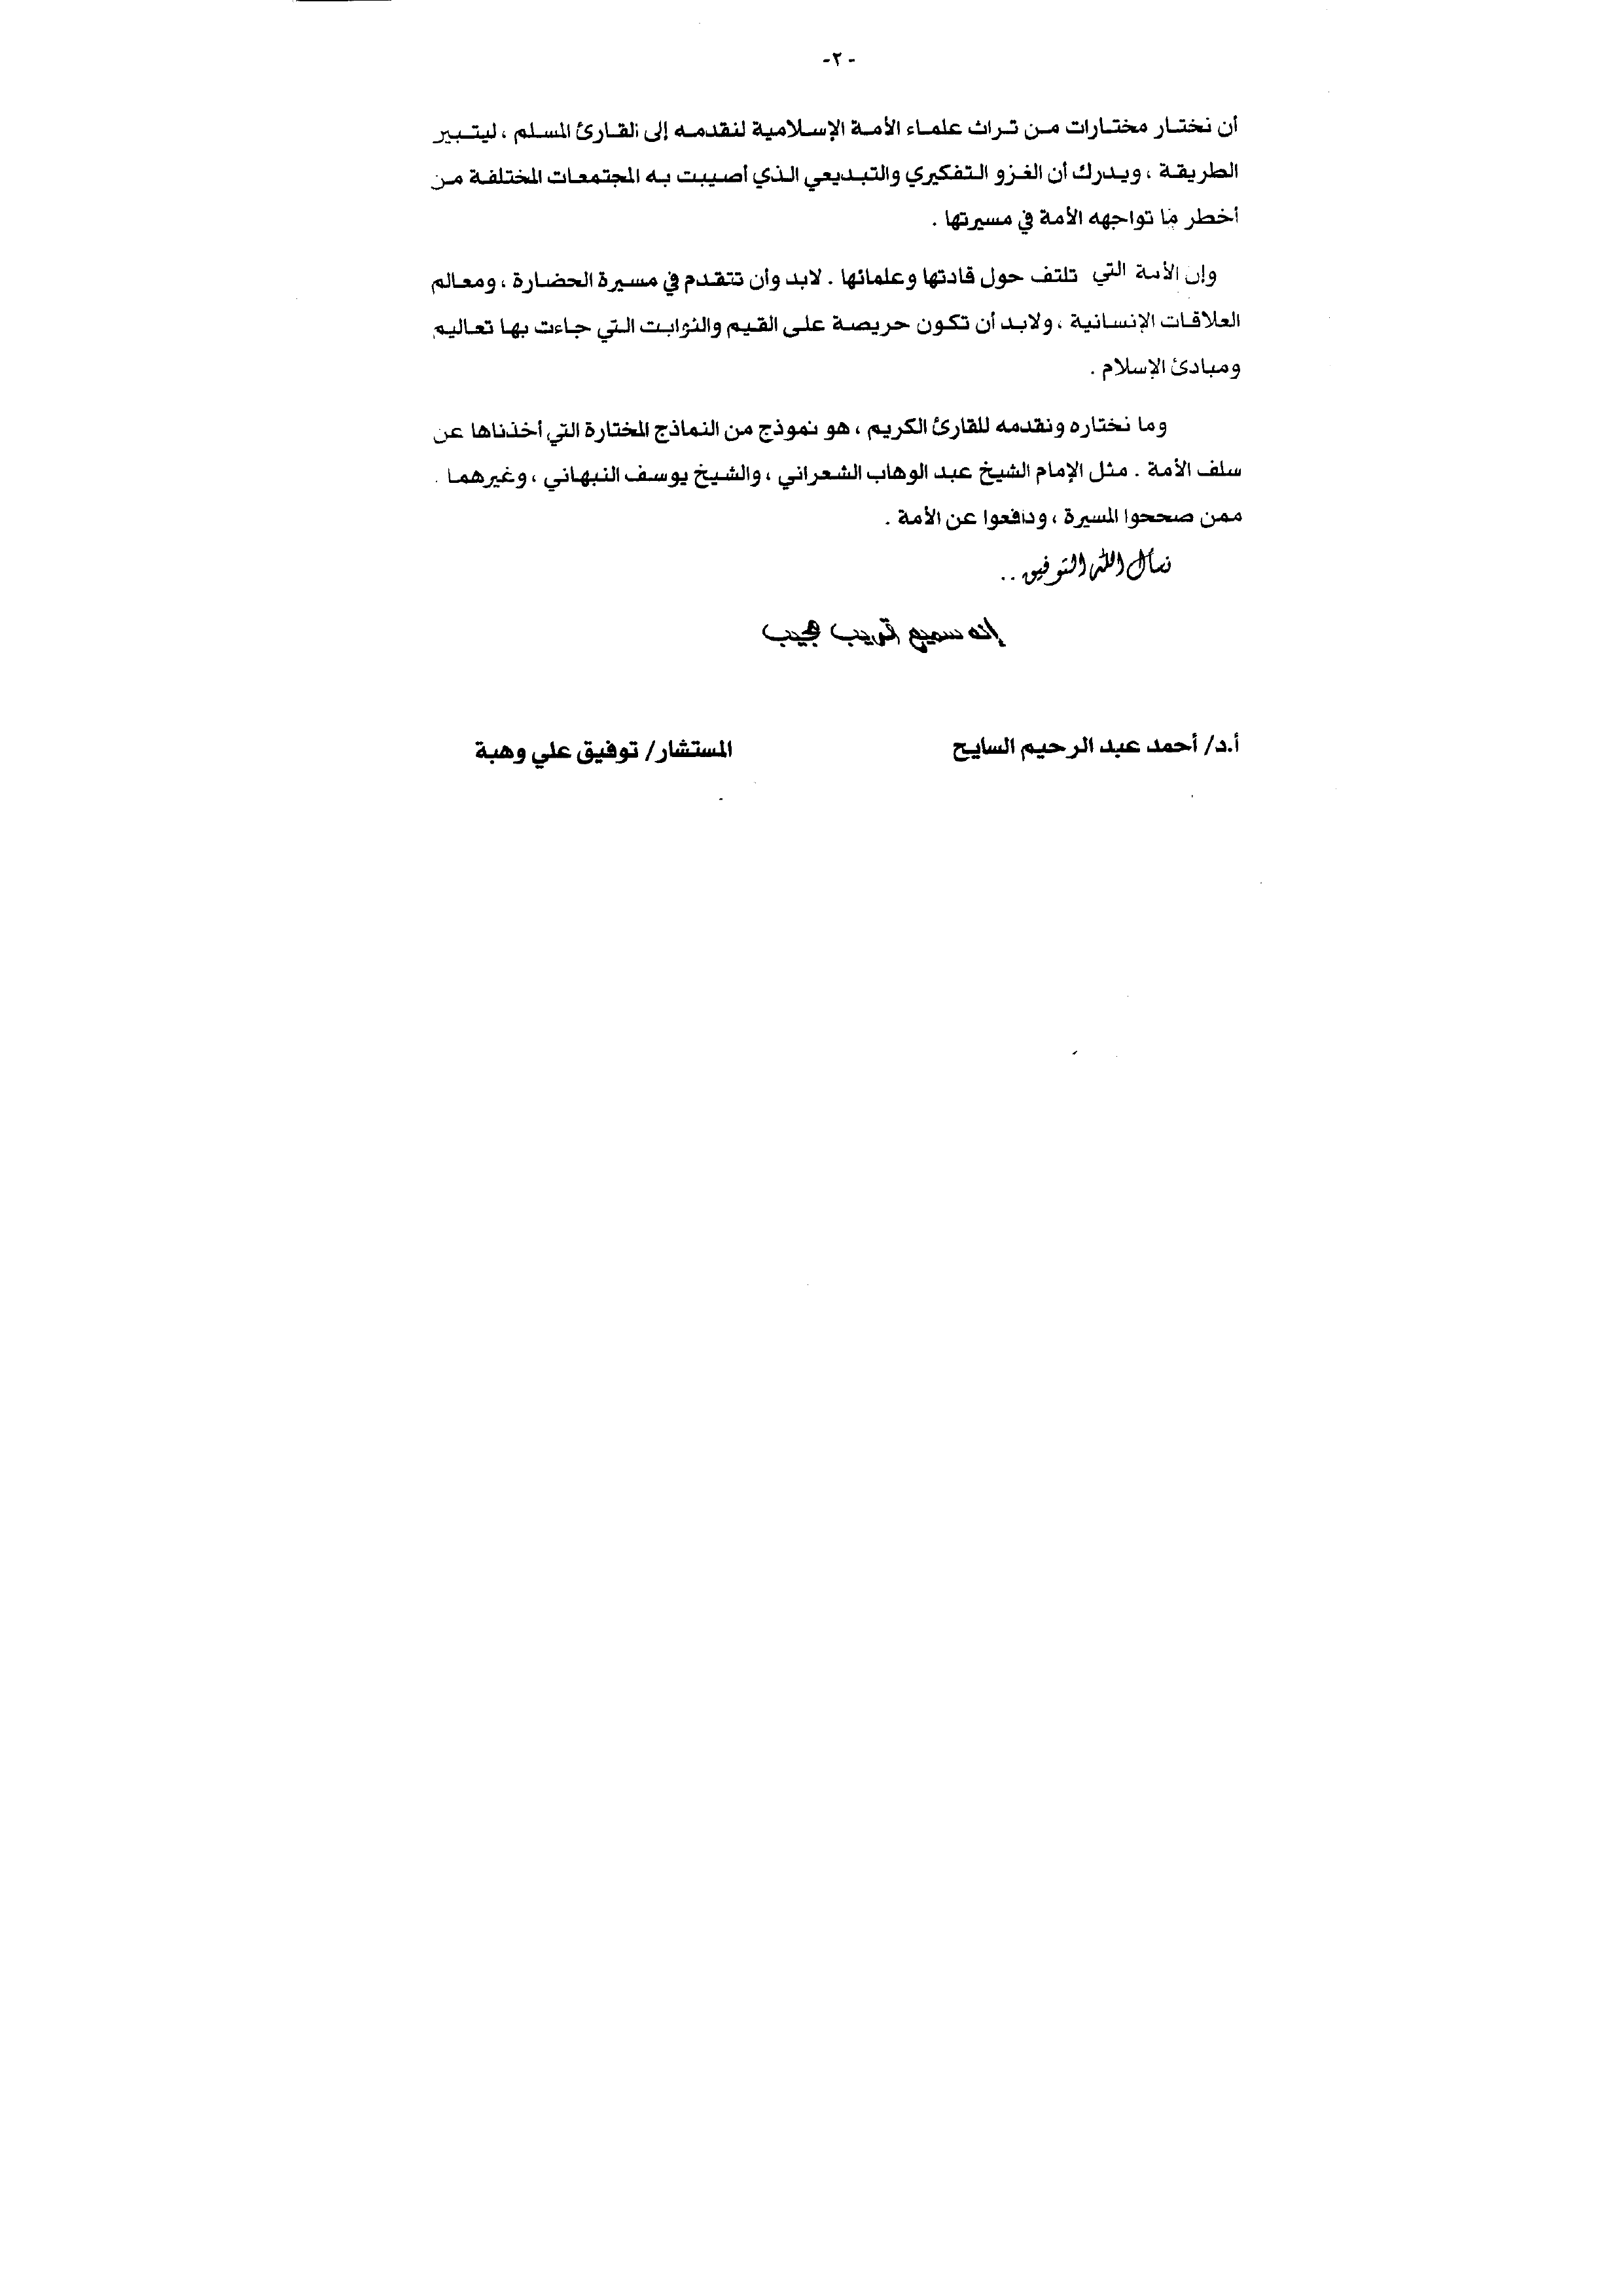 -٢ -
أن نختار مختارات من تراث علماء الأمة الإسلامية لنقدمه إلى القارئ المسلم ، ليتبير
الطريقة ، ويدرك أن الغزو التفكيري والتبديعي الذي أصيبت به المجتمعات المختلفة من
أخطر ما تواجهه الأمة في مسيرتها .
وإن الأمة التي تلتف حول قادتها وعلمائها . لابد وأن تتقدم في مسيرة الحضارة ، ومعالم
العلاقات الإنسانية ، ولابد أن تكون حريصة على القيم والثوابت التي جاءت بها تعاليم
ومبادئ الإسلام .
وما نختاره ونقدمه للقارئ الكريم ، هو نموذج من النماذج المختارة التي أخذناها عن
سلف الأمة . مثل الإمام الشيخ عبد الوهاب الشعراني ، والشيخ يوسف النبهاني ، وغيرهما .
ممن صححوا المسيرة ، ودافعوا عن الأمة .
نسأل الله التوفيق ..
إنه سميع قريب مجيب
أ.د/ أحمد عبد الرحيم السايح المستشار/ توفيق علي وهبة